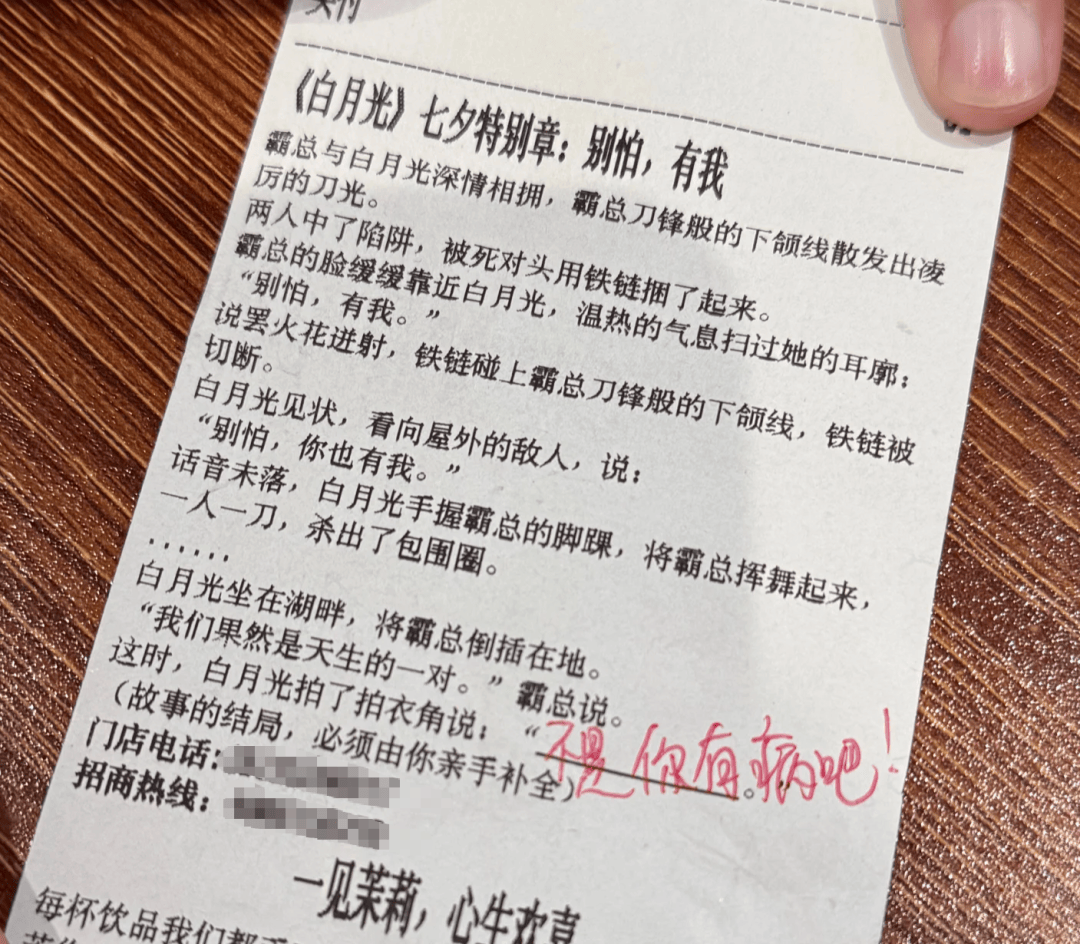 实付
《白月光》七夕特别章：别怕，有我
霸总与白月光深情相拥，霸总刀锋般的下颌线散发出凌
厉的刀光。
两人中了陷阱，被死对头用铁链捆了起来。
霸总的脸缓缓靠近白月光，温热的气息扫过她的耳廓：
“别怕，有我。”
说罢火花迸射，铁链碰上霸总刀锋般的下颌线，铁链被
切断。
白月光见状，看向屋外的敌人，说：
“别怕，你也有我。”
话音未落，白月光手握霸总的脚踝，将霸总挥舞起来，
一人一刀，杀出了包围圈。
······
白月光坐在湖畔，将霸总倒插在地。
“我们果然是天生的一对。”霸总说。
这时，白月光拍了拍衣角说：“不是你有病吧！。”
（故事的结局，必须由你亲手补全）
门店电话：
招商热线：
一见茉莉，心生欢喜
每杯饮品我们都